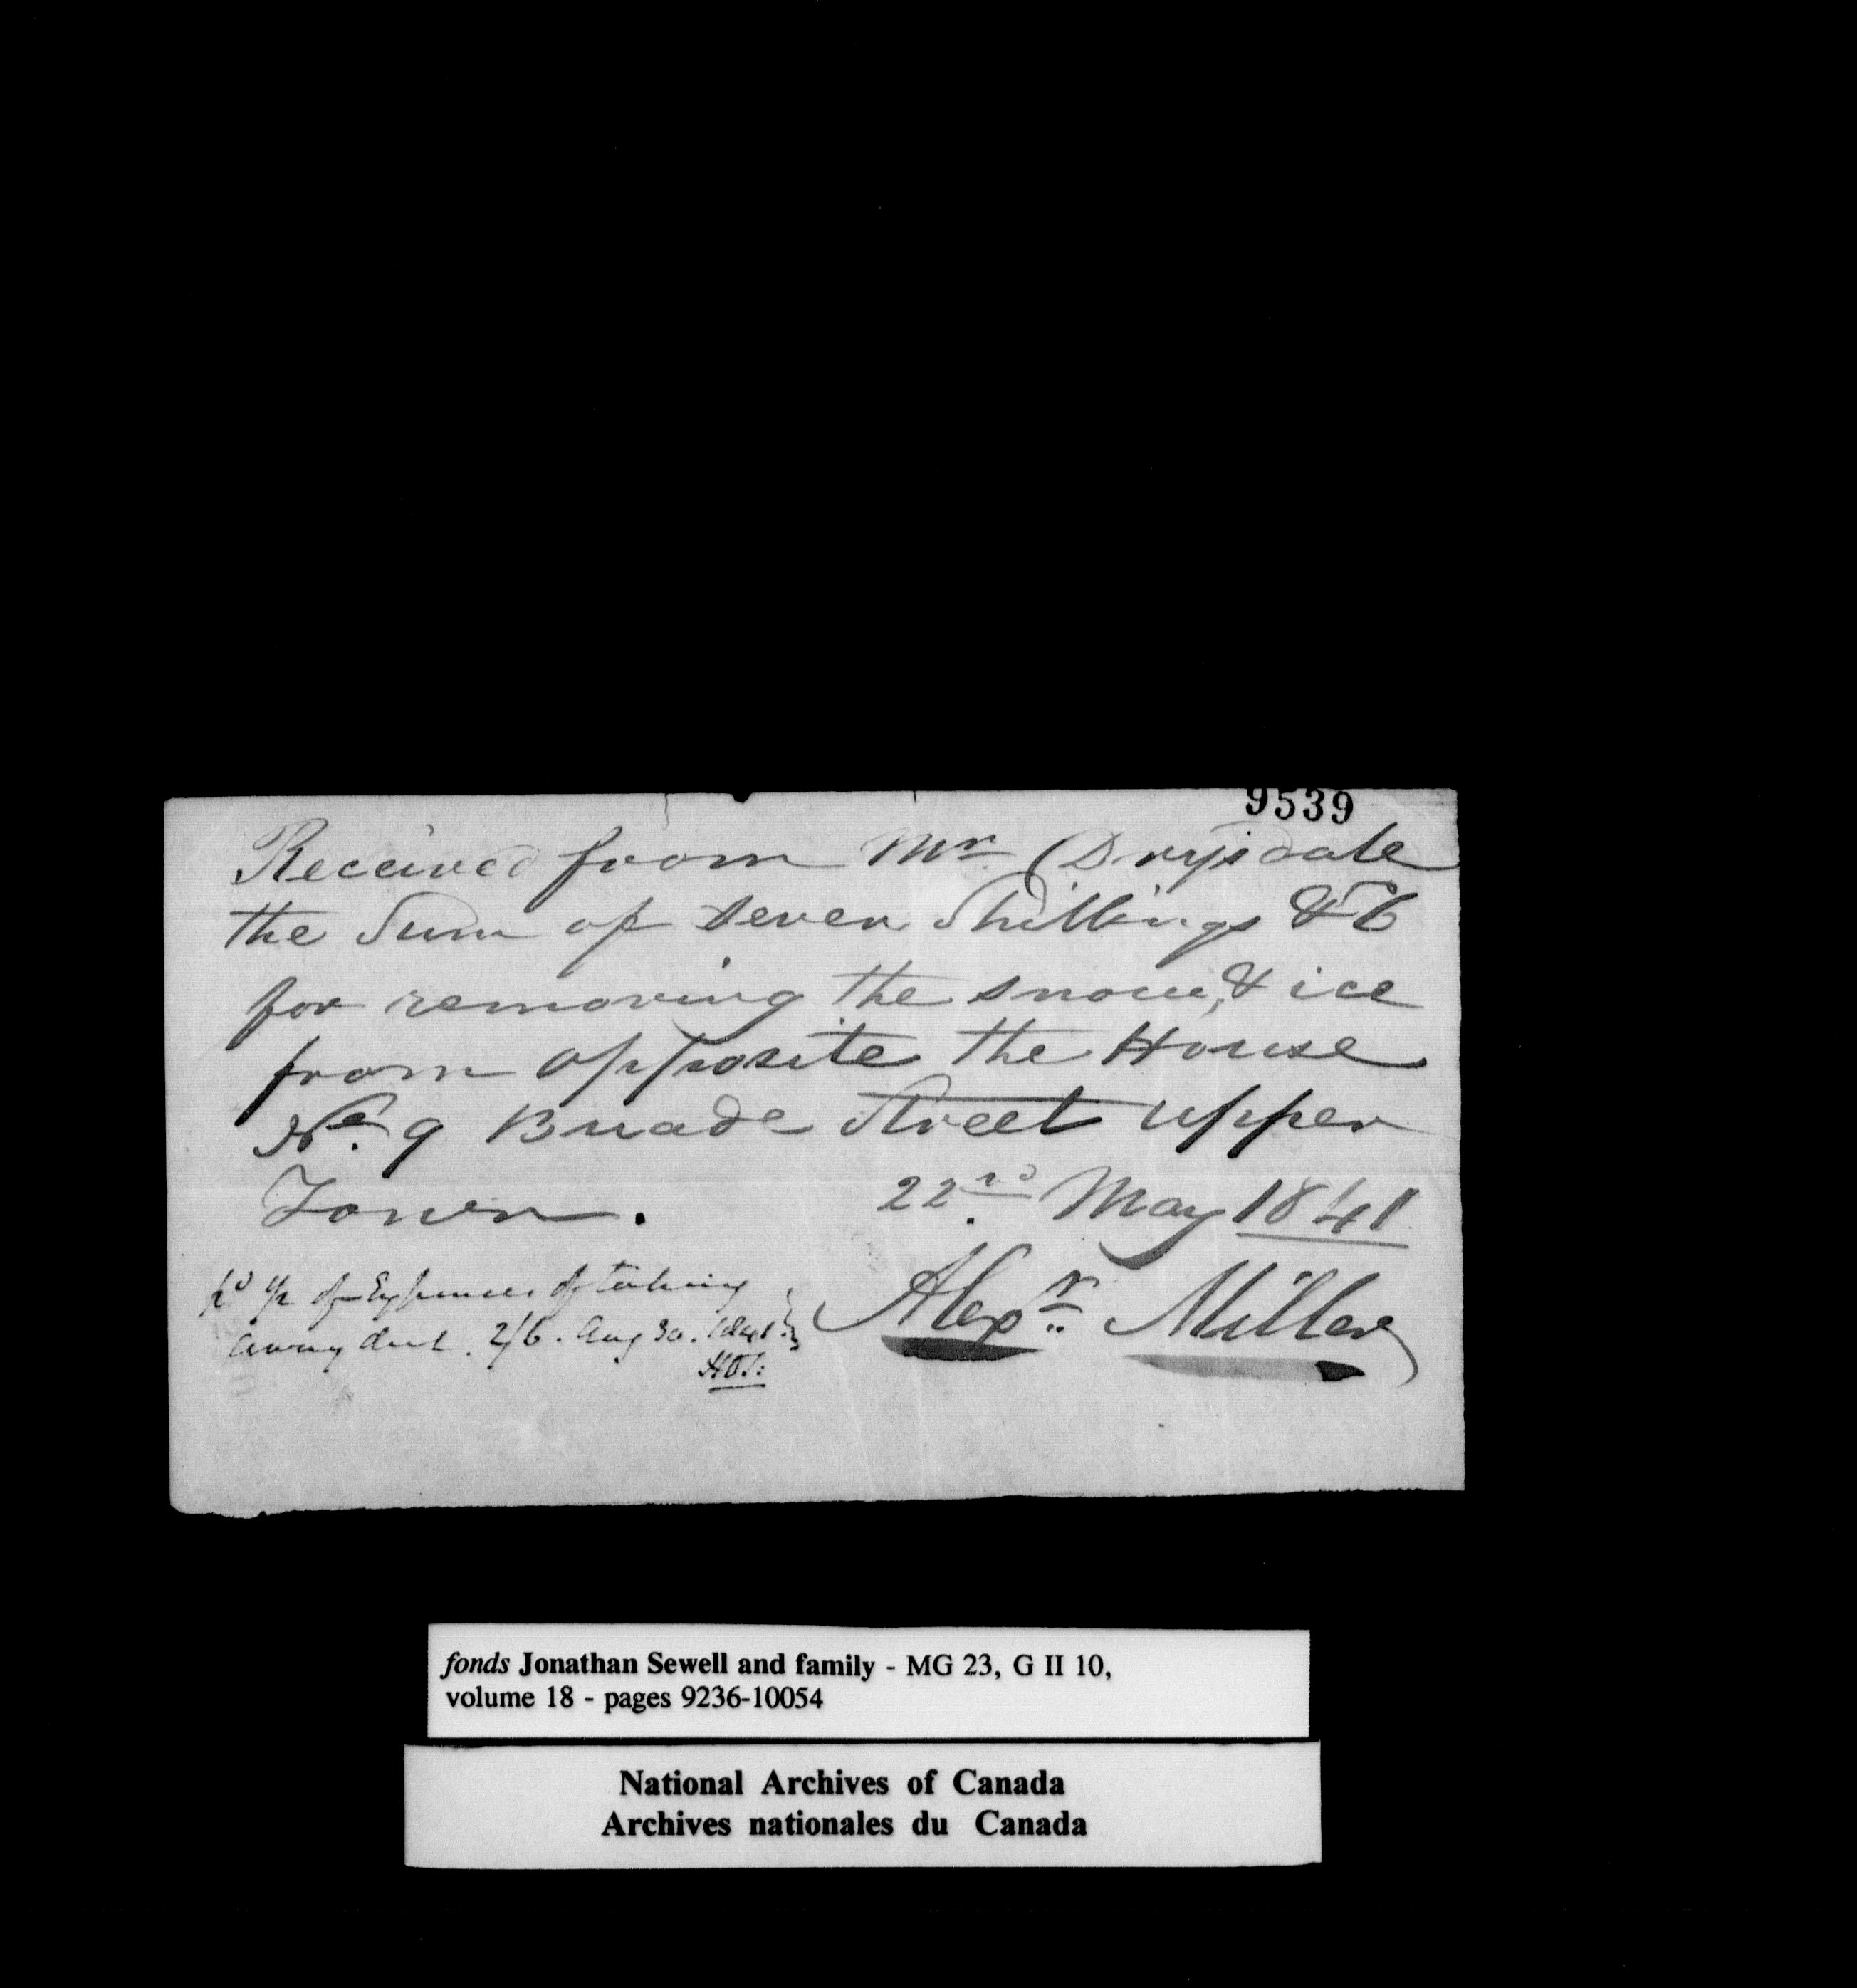 9539
Received from Mr Drysdale
the Sum of seven Shillings & 6
for removing the snow, & ice
from opposite the House
No. 9 Buade Street upper
Town.
22nd May 1841
Alexr. Miller
pd of Expenses of taking
away dirt. 2/6. Aug 30. 1841.
fonds Jonathan Sewell and family - MG 23, G II 10,
volume 18 - pages 9236-10054
National Archives of Canada
Archives nationales du Canada